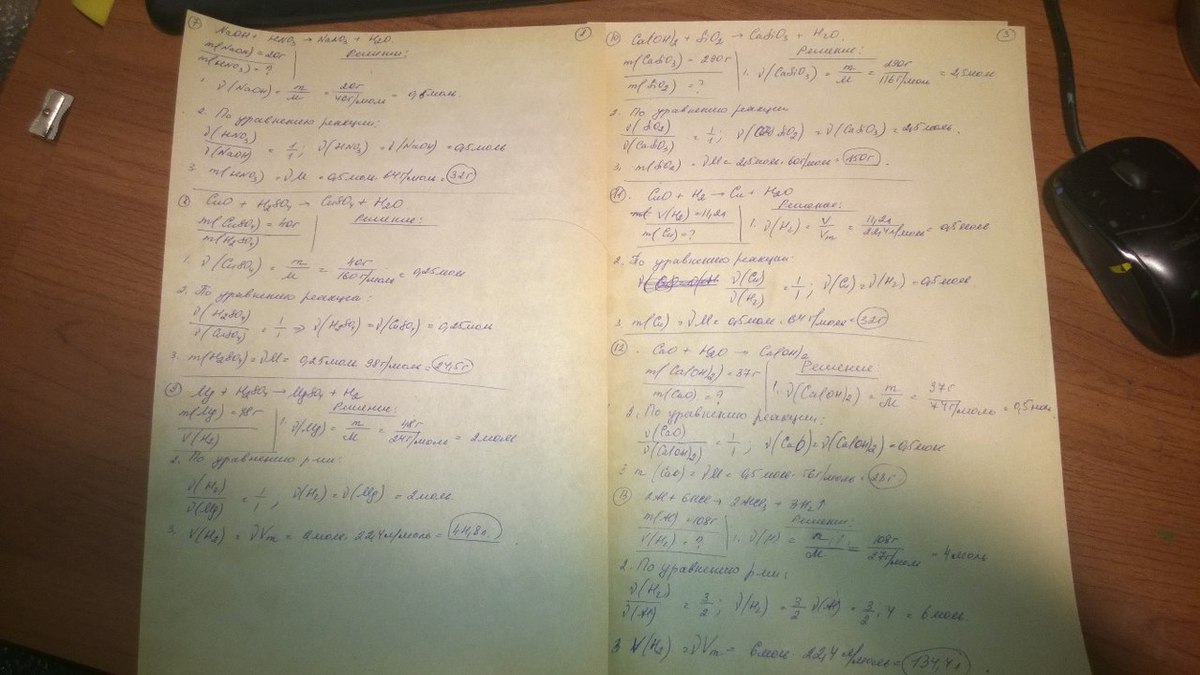 7
2
NaOH + HNO₃ → NaNO₃ + H₂O.
m(NaOH) = 20г
Решение:
m(HNO₃) = ?
1. ν(NaOH) = m/M = 20г/40г/моль = 0,5моль.
2. По уравнению реакции:
ν(HNO₃)/ν(NaOH) = 1/1; ν(HNO₃) = ν(NaOH) = 0,5моль
3. m(HNO₃) = νM = 0,5моль · 64г/моль = 32г
8
CuO + H₂SO₄ → CuSO₄ + H₂O
m(CuSO₄) = 40г
Решение:
m(H₂SO₄)
1. ν(CuSO₄) = m/M = 40г/160г/моль = 0,25моль
2. По уравнению реакции:
ν(H₂SO₄)/ν(CuSO₄) = 1/1 => ν(H₂SO₄) = ν(CuSO₄) = 0,25моль
3. m(H₂SO₄) = νM = 0,25моль · 98г/моль = 24,5г
Mg + H₂SO₄ → MgSO₄ + H₂
m(Mg) = 48г
Решение:
V(H₂)
1. ν(Mg) = m/M = 48г/24г/моль = 2моль
2. По уравнению р-ии:
ν(H₂)/ν(Mg) = 1/1; ν(H₂) = ν(Mg) = 2моль
3. V(H₂) = νVm = 2моль · 22,4л/моль = 44,8л.
10
3
Ca(OH)₂ + SiO₂ → CaSiO₃ + H₂O.
m(CaSiO₃) = 290г
Решение:
m(SiO₂) = ?
1. ν(CaSiO₃) = m/M = 290г/116г/моль = 2,5моль
2. По уравнению реакции
ν(SiO₂)/ν(CaSiO₃) = 1/1; ν(SiO₂) = ν(CaSiO₃) = 2,5моль.
3. m(SiO₂) = νM = 2,5моль · 60г/моль = 150г.
11
CuO + H₂ → Cu + H₂O
V(H₂) = 11,2л
Решение:
m(Cu) = ?
1. ν(H₂) = V/Vm = 11,2л/22,4л/моль = 0,5моль
2. По уравнению реакции:
ν(Cu)/ν(H₂) = 1/1; ν(Cu) = ν(H₂) = 0,5моль
3. m(Cu) = νM = 0,5моль · 64г/моль = 32г
12
CaO + H₂O → Ca(OH)₂
m(Ca(OH)₂) = 37г
Решение
m(CaO) = ?
1. ν(Ca(OH)₂) = m/M = 37г/74г/моль = 0,5моль
По уравнению реакции:
ν(CaO)/ν(Ca(OH)₂) = 1/1; ν(CaO) = ν(Ca(OH)₂) = 0,5моль
3 m(CaO) = νM = 0,5моль · 56г/моль = 28г.
13
2Al + 6HCl → 2AlCl₃ + 3H₂↑
m(Al) = 108г
Решение:
V(H₂) = ?
1. ν(Al) = m/M = 108г/27г/моль = 4моль
2. По уравнению р-ии:
ν(H₂)/ν(Al) = 3/2; ν(H₂) = 3/2 ν(Al) = 3/2 · 4 = 6моль.
3 V(H₂) = νVm = 6моль · 22,4л/моль = 134,4л.